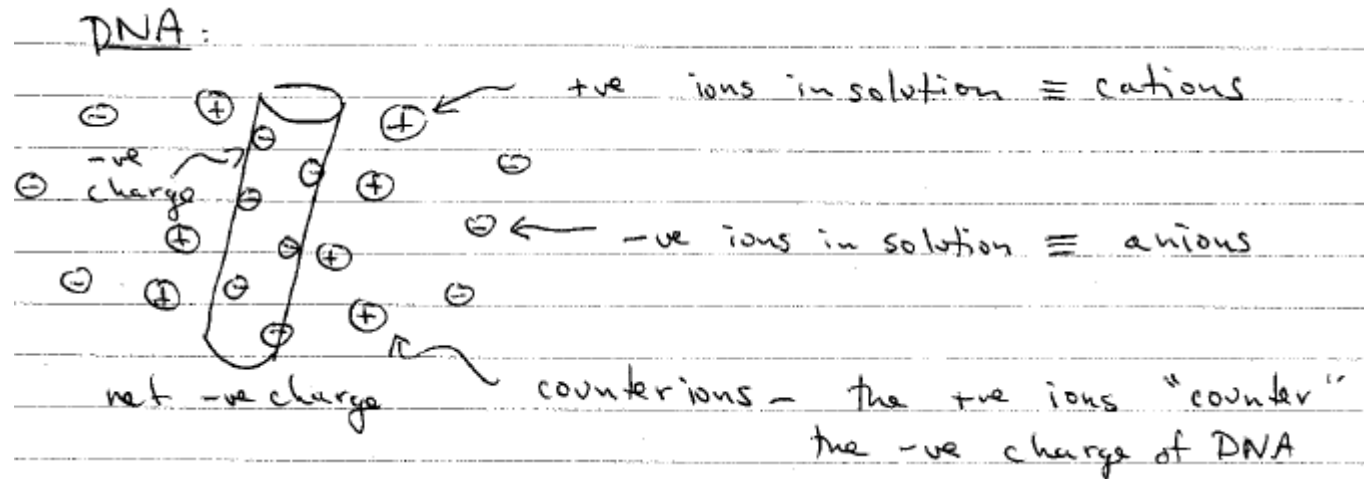 DNA:
+ve ions in solution ≡ cations
-ve
charge
-ve ions in solution ≡ anions
net -ve charge
counterions - the +ve ions "counter"
the -ve charge of DNA